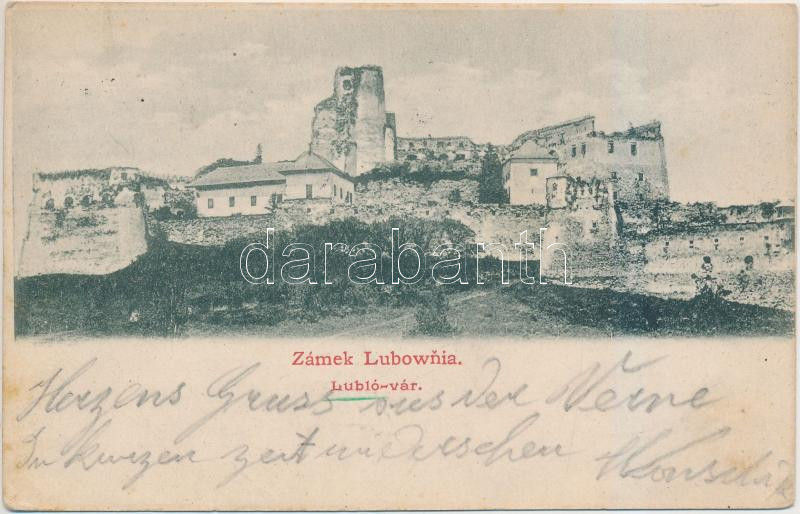 darabanth
Zámek Lubowňia.
Lubló-vár.
Herzens Gruss aus der
In kurzen zeit wiedersehen